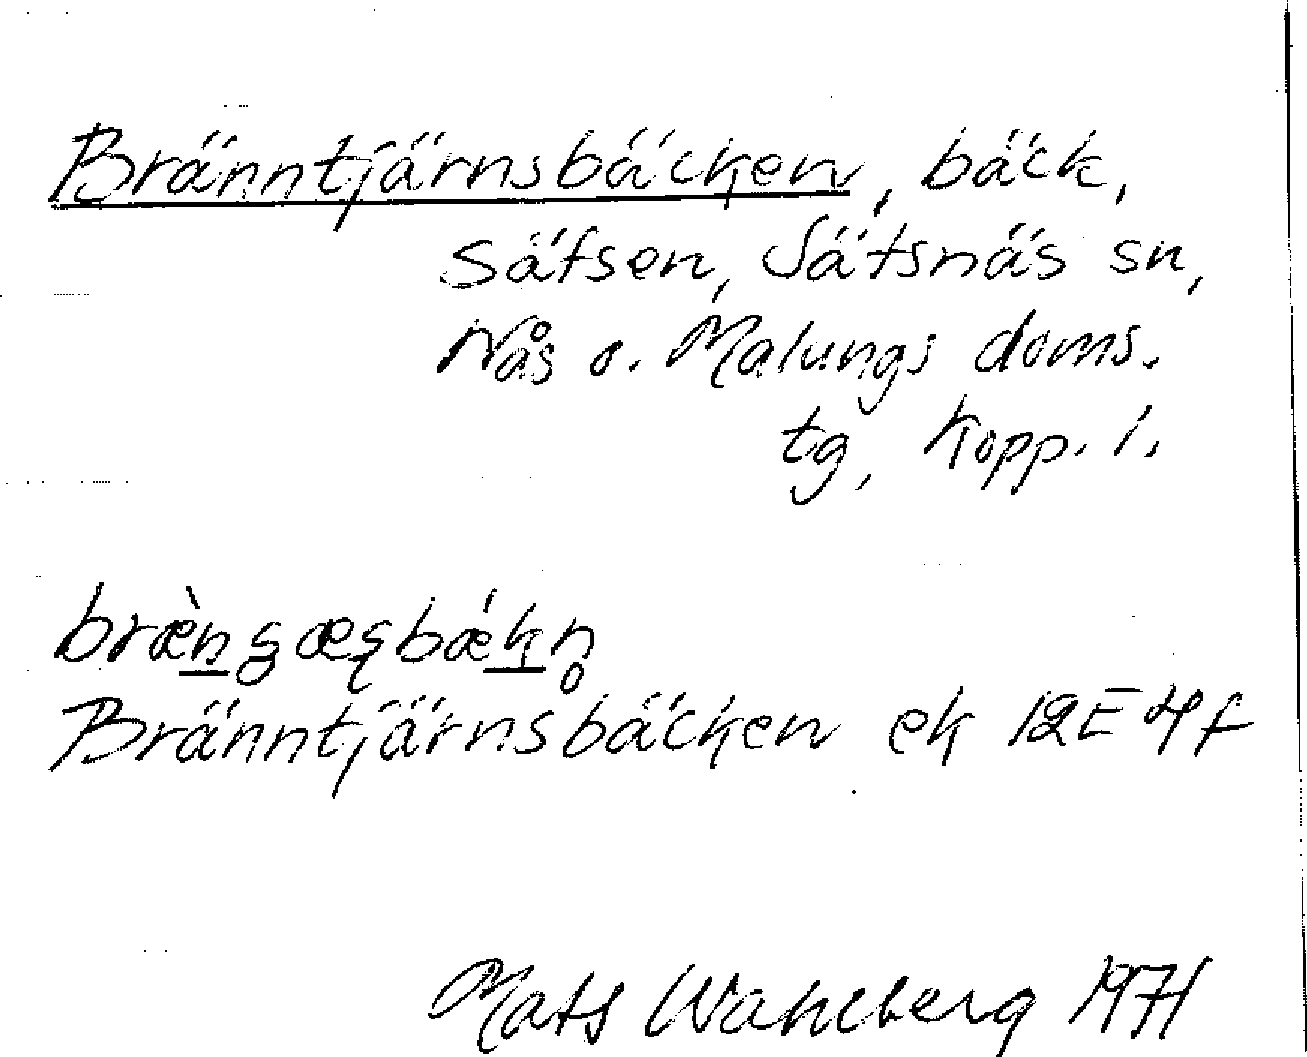 Bränntjärnsbäcken, bäck,
Säfsen, Säfsnäs sn,
Nås o. Malungs doms.
tg, Kopp. l.
Bränntjärnsbäcken ek 12E4f
Mats Wahlberg 1971